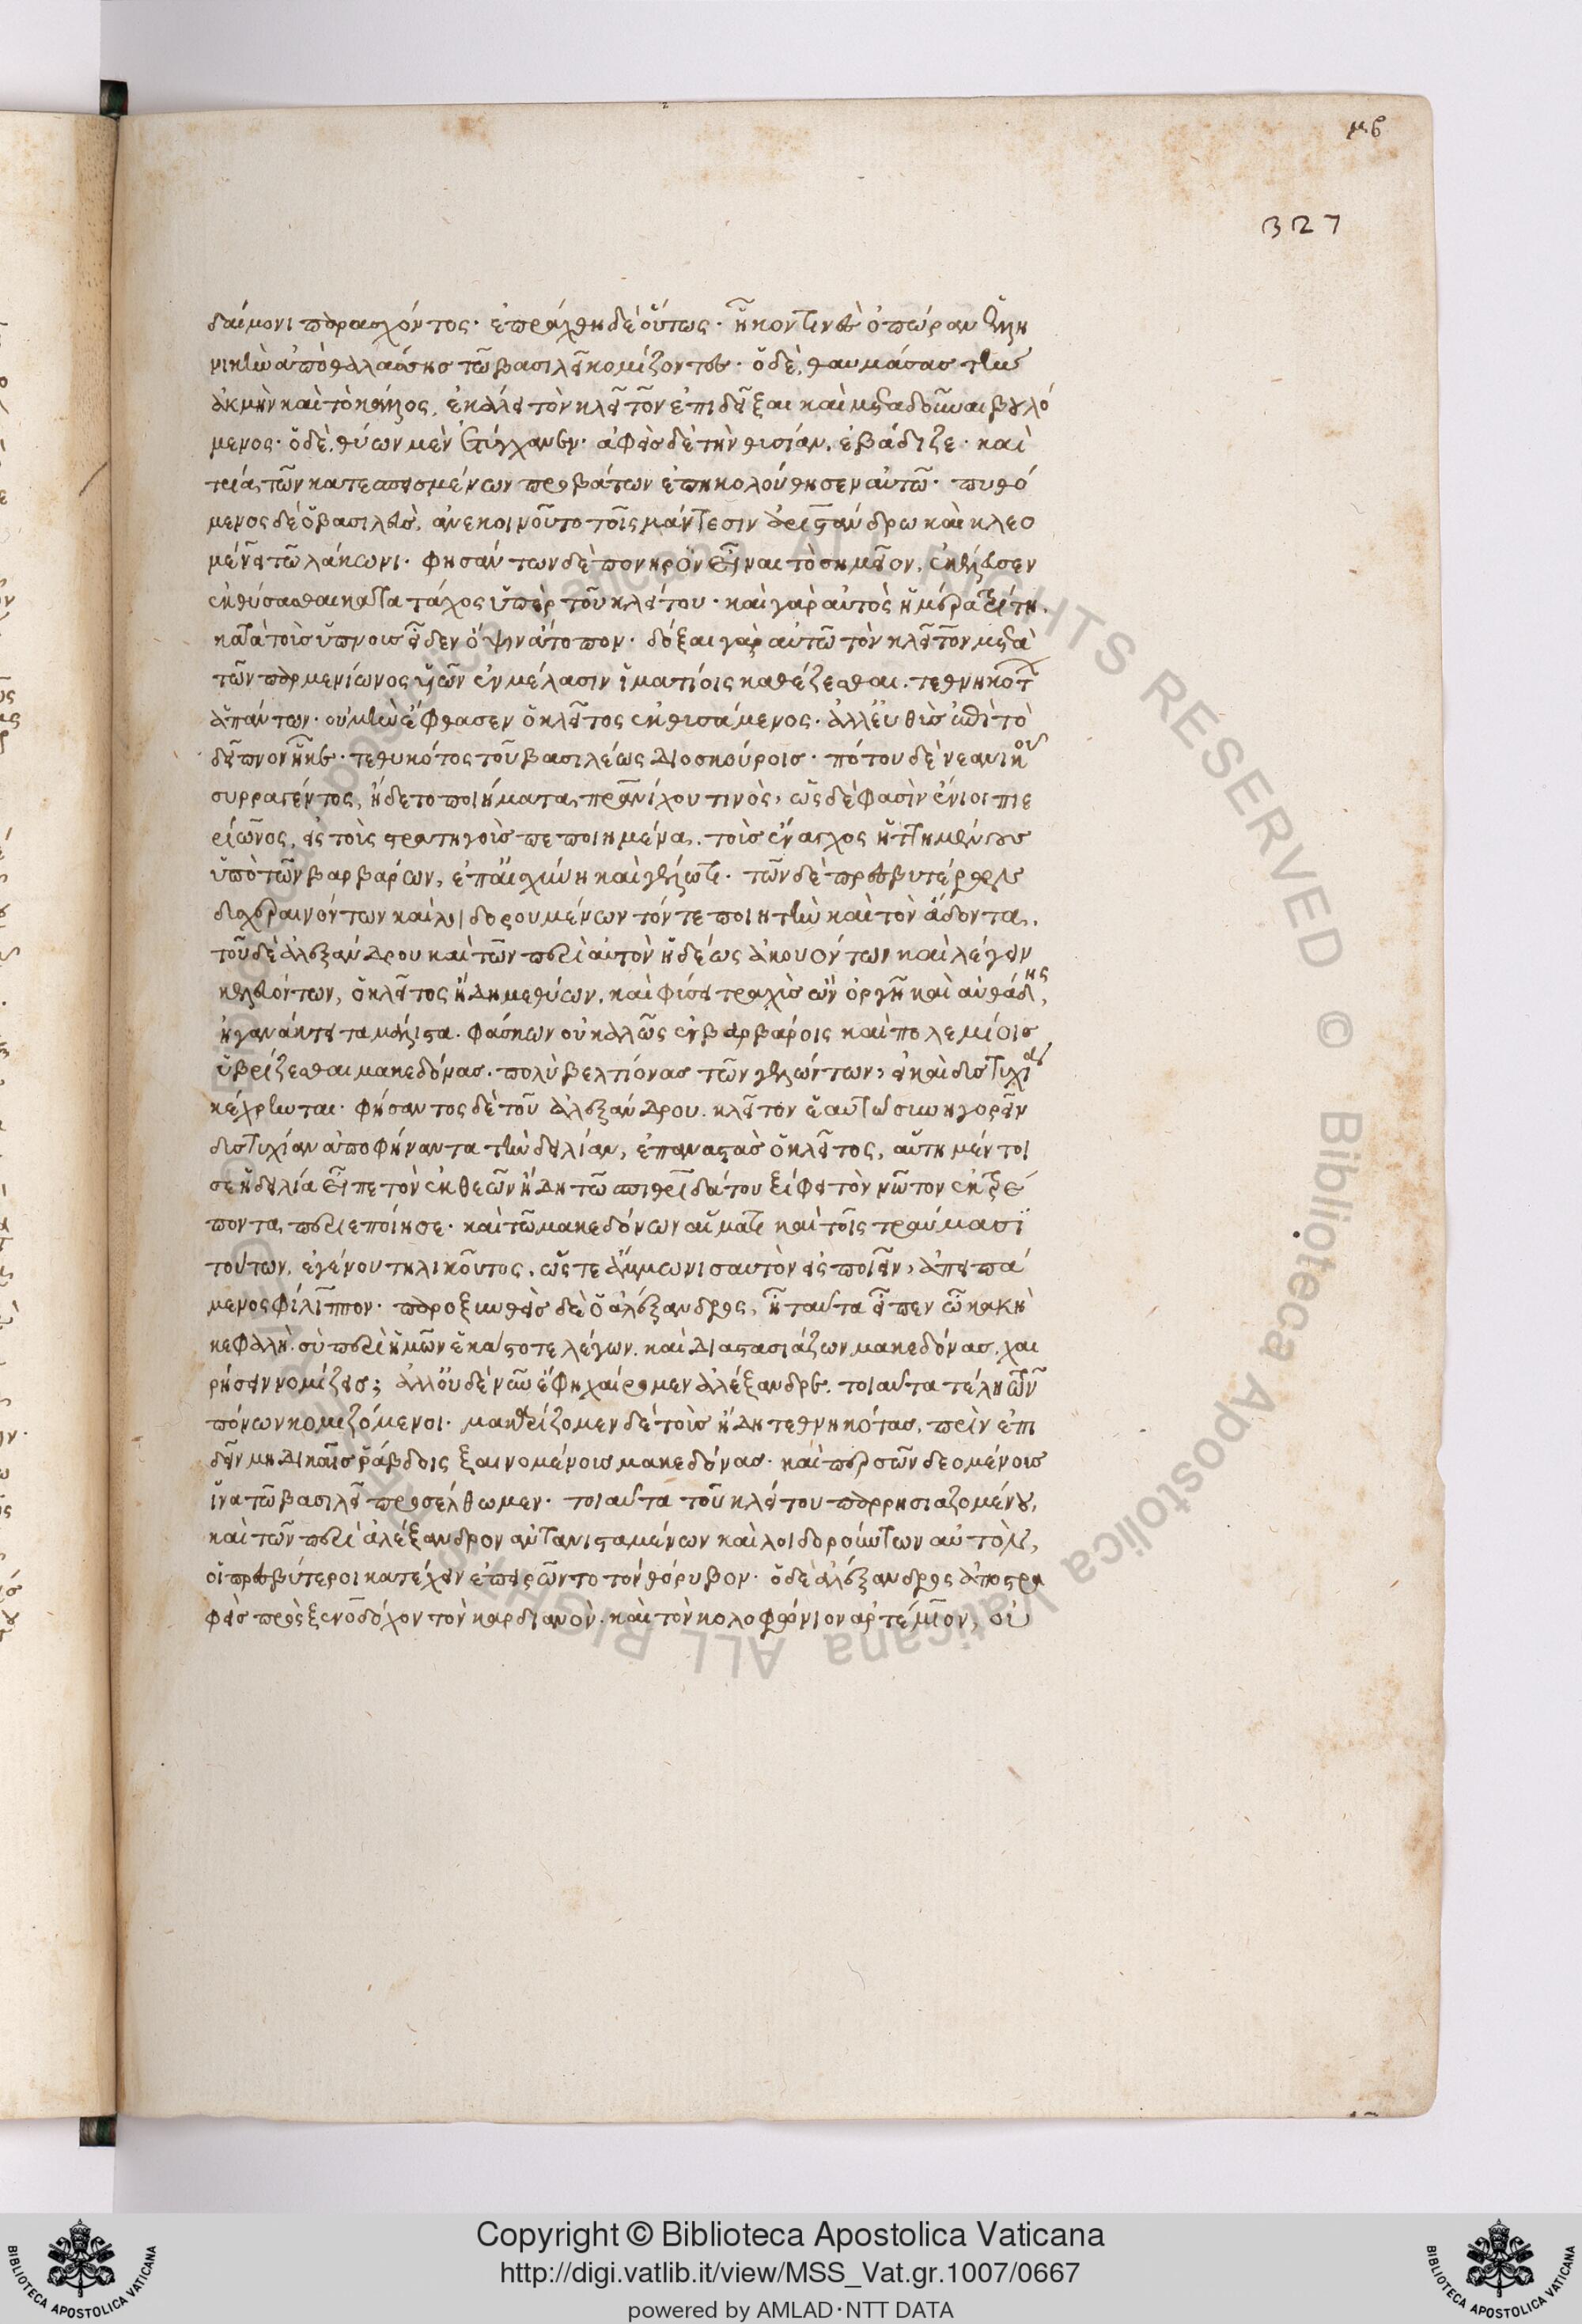 μϛ
327
δαίμονι παρασχόντος· ἐπράχθη δὲ οὕτως· ἧκον τινὲς ὀπώραν ἑλλη
νικὴν ἀπὸ θαλάσσης τῶ βασιλεῖ κομίζοντες· ὁ δὲ, θαυμάσας τὴν
ἀκμὴν καὶ τὸ κάλλος, ἐκάλει τὸν κλεῖτον ἐπιδεῖξαι καὶ μεταδοῦναι βουλό
μενος· ὁ δὲ, θύων μὲν ἐτύγχανεν· ἀφεὶς δὲ τὴν θυσίαν, ἐβάδιζε· καὶ
τρία τῶν κατεσπεισμένων προβάτων ἐπηκολούθησεν αὐτῶ· πυθό
μενος δὲ ὁ βασιλεὺς, ἀνεκοινοῦτο τοῖς μάντεσιν ἀριστάνδρω καὶ κλεο
μένει τῶ λάκωνι· φησάντων δὲ πονηρὸν εἶναι τὸ σημεῖον, ἐκέλευσεν
ἐκθύσασθαι κατὰ τάχος ὑπὲρ τοῦ κλείτου· καὶ γὰρ αὐτὸς ἡμέρα τρίτη,
κατὰ τοὺς ὕπνους εἶδεν ὄψιν ἄτοπον· δόξαι γὰρ αὐτῶ τὸν κλεῖτον μετὰ
τῶν παρμενίωνος υἱῶν ἐν μέλασιν ἱματίοις καθέζεσθαι, τεθνηκότων
ἁπάντων· οὐ μὴν ἔφθασεν ὁ κλεῖτος ἐκθυσάμενος· ἀλλ' εὐθὺς ἐπὶ τὸ
δεῖπνον ἧκε· τεθυκότος τοῦ βασιλέως Διοσκούροις· πότου δὲ νεανικοῦ
συρραγέντος, ἤδετο ποιήματα πρανίχου τινὸς, ὡς δέ φασὶν ἔνιοι πιε
ρίωνος, εἰς τοὺς στρατηγοὺς πεποιημένα, τοὺς ἔναγχος ἡττημένους
ὑπὸ τῶν βαρβάρων, ἐπ' αἰσχύνη καὶ γέλωτι· τῶν δὲ πρεσβυτέρων
δυσχεραινόντων καὶ λοιδορουμένων τόν τε ποιητὴν καὶ τὸν ἄδοντα,
τοῦ δὲ ἀλεξάνδρου καὶ τῶν περὶ αὐτὸν ἡδέως ἀκουόντων καὶ λέγειν
κελευόντων, ὁ κλεῖτος ἤδη μεθύων, καὶ φύσει τραχὺς ὢν ὀργὴν καὶ αὐθάδης,
ἠγανάκτει τα μάλιστα· φάσκων οὐ καλῶς ἐν βαρβάροις καὶ πολεμίοις
ὑβρίζεσθαι μακεδόνας· πολὺ βελτίονας τῶν γελώντων, εἰ καὶ δυστυχία
κέχρηνται· φήσαντος δὲ τοῦ ἀλεξάνδρου, κλεῖτον ἑαυτῶ συνηγορεῖν
δυστυχίαν ἀποφήναντα τὴν δειλίαν, ἐπαναστὰς ὁ κλεῖτος, αὕτη μέντοι
σε ἡ δειλία εἶπε τὸν ἐκ θεῶν ἤδη τῶ σπιθριδάτου ξίφει τὸν νῶτον ἐκτρέ
ποντα περιεποίησε· καὶ τῶ μακεδόνων αἵματι καὶ τοῖς τραύμασι
τούτων, ἐγένου τηλικοῦτος, ὥστε ἄμμωνι σαυτὸν εἰσποιεῖν, ἀπειπά
μενος φίλιππον· παροξυνθεὶς δὲ ὁ ἀλέξανδρος, ἦ ταῦτα εἶπεν ὦ κακὴ
κεφαλὴ, σὺ περὶ ἡμῶν ἑκάστοτε λέγων, καὶ διαστασιάζων μακεδόνας, χαι
ρήσειν νομίζεις; ἀλλ' οὐδὲ νῦν ἔφη χαίρομεν ἀλέξανδρε, τοιαῦτα τέλη τῶν
πόνων κομιζόμενοι· μακαρίζομεν δὲ τοὺς ἤδη τεθνηκότας, πρὶν ἐπι
δεῖν μηδικαῖς ῥάβδοις ξαινομένους μακεδόνας· καὶ περσῶν δεομένους
ἵνα τῶ βασιλεῖ προσέλθωμεν· τοιαῦτα τοῦ κλείτου παρρησιαζομένου,
καὶ τῶν περὶ ἀλέξανδρον ἀντανισταμένων καὶ λοιδορούντων αὐτὸν,
οἱ πρεσβύτεροι κατέχειν ἐπειρῶντο τὸν θόρυβον· ὁ δὲ ἀλέξανδρος ἀποστρα
φεὶς πρὸς ξενόδοχον τὸν καρδιανὸν, καὶ τὸν κολοφώνιον ἀρτέμιον, οὐ
Copyright © Biblioteca Apostolica Vaticana
http://digi.vatlib.it/view/MSS_Vat.gr.1007/0667
powered by AMLAD·NTT DATA